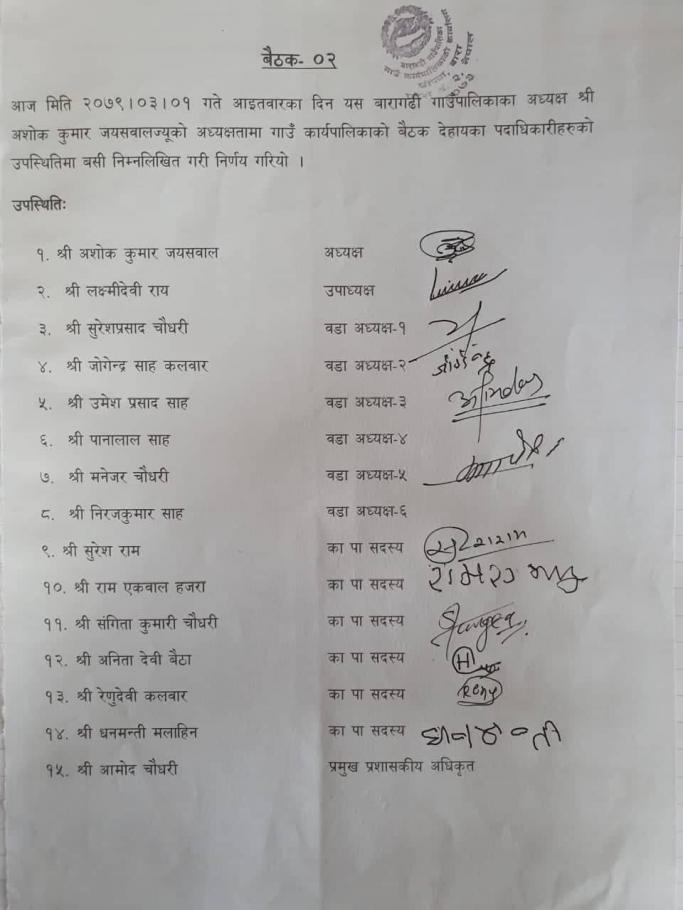 बैठक- ०२
आज मिति २०७९।०३।०१ गते आइतवारका दिन यस बारागढी गाउँपालिकाका अध्यक्ष श्री
अशोक कुमार जयसवालज्यूको अध्यक्षतामा गाउँ कार्यपालिकाको बैठक देहायका पदाधिकारीहरुको
उपस्थितिमा बसी निम्नलिखित गरी निर्णय गरियो ।
उपस्थितिः
१. श्री अशोक कुमार जयसवाल अध्यक्ष
२. श्री लक्ष्मीदेवी राय उपाध्यक्ष
३. श्री सुरेशप्रसाद चौधरी वडा अध्यक्ष-१
४. श्री जोगेन्द्र साह कलवार वडा अध्यक्ष-२
५. श्री उमेश प्रसाद साह वडा अध्यक्ष-३
६. श्री पानालाल साह वडा अध्यक्ष-४
७. श्री मनेजर चौधरी वडा अध्यक्ष-५
८. श्री निरजकुमार साह वडा अध्यक्ष-६
९. श्री सुरेश राम का पा सदस्य
१०. श्री राम एकवाल हजरा का पा सदस्य
११. श्री संगिता कुमारी चौधरी का पा सदस्य
१२. श्री अनिता देवी बैठा का पा सदस्य
१३. श्री रेणुदेवी कलवार का पा सदस्य Renu
१४. श्री धनमन्ती मलाहिन का पा सदस्य
१५. श्री आमोद चौधरी प्रमुख प्रशासकीय अधिकृत